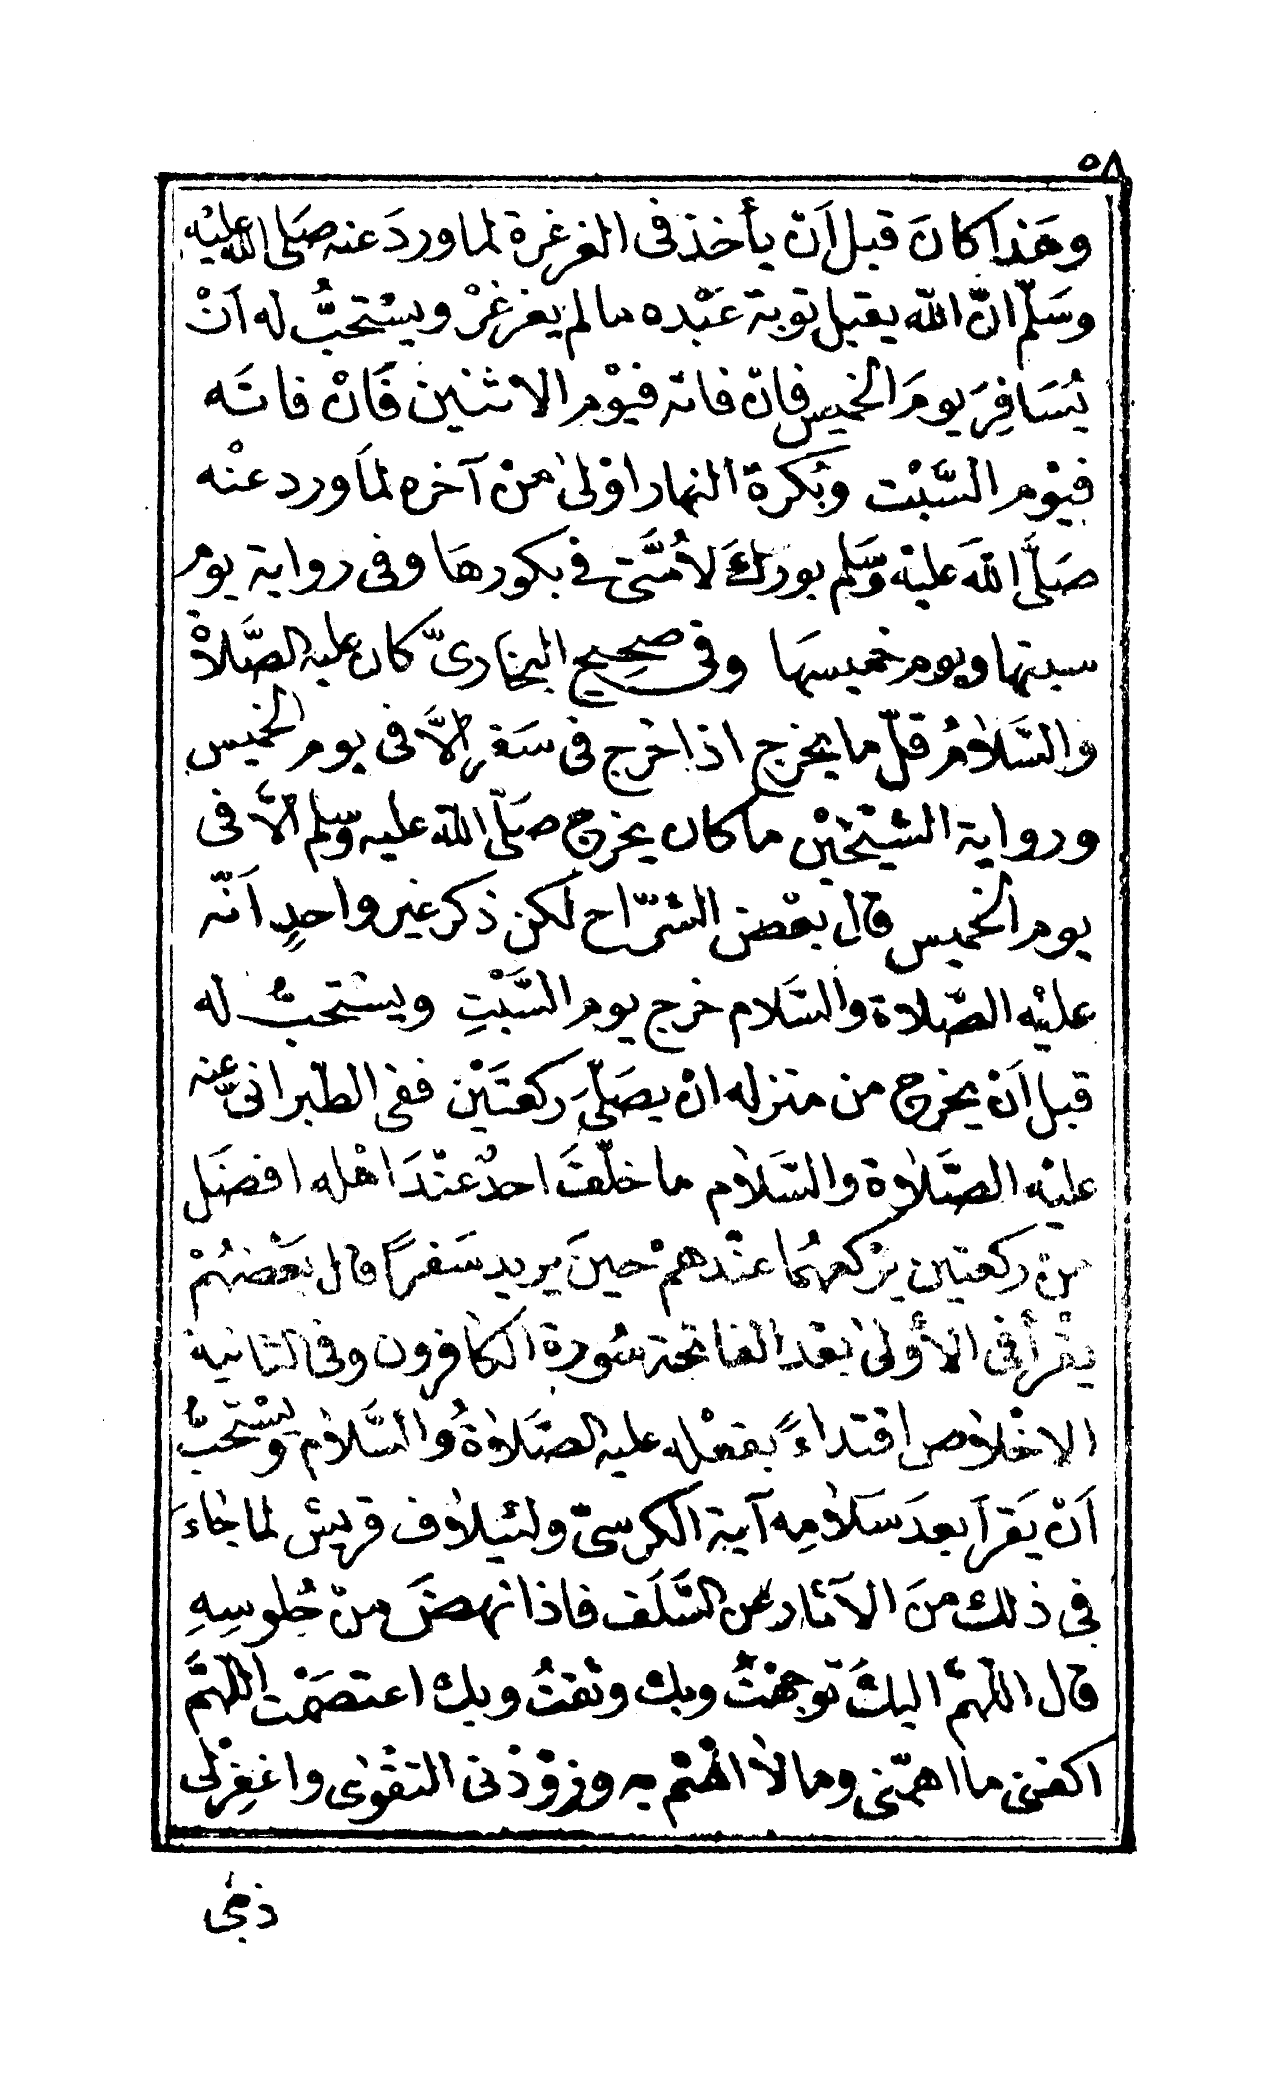 ٥٨
وهَذا كانَ قبل اَنْ يأخذ فى الغرغرة لما وردَ عنه صَلى الله عليْه
وسَلّم انّ الله يقبل توبة عَبْده ما لم يغرغرْ ويسْتحبُّ له اَنْ
يُسَافِرَ يومَ الخميس فانْ فاته فيوْم الاثنين فَانْ فاتَه
فيوْم السَّبْت وبُكرة النهار اوْلى منْ آخره لمَا ورد عنْه
صَلَّى الله عليْه وسَّلم بوركَ لاُمَّتى فى بكورهَا وفى رواية يوم
سبتها ويوم خميسهَا وفى صحِيح البخارىّ كان عليه الصَّلاة
والسَّلامُ قلّ ما يخرج اذا خرج فى سَفرٍ الاَّ فى يوم الخميس
ورواية الشيْخيْن ما كان يخرج صَلّى الله عليه وسّلم الاَّ فى
يوم الخميس قال بعْض الشرّاح لكن ذكر غير واحدٍ اَنّه
عليْه الصّلاة والسَّلام خرج يوم السَّبْتِ ويستحبُّ له
قبل اَنْ يخرج من منزله انْ يصَلّىَ ركعتَيْن ففى الطّبرانىّ عنه
عليْه الصَّلاة والسَّلام ما خلّفَ احدٌ عنْدَ اهْله افضَل
منْ ركعتين يرْكعهُما عنْدهمْ حينَ يريد سَفرًا قال بَعْضهُمْ
يقْرأ فى الاُولى بعْد الفاتحة سُورة الكافرون وفى الثانية
الاخْلاص اقتداءً بفعْله عليه الصَّلاةُ والسَّلام ويسْتحبُّ
اَنْ يَقرأ بعدَ سَلامِه آية الكرسىّ ولئيلاف قريش لما جاءَ
فى ذلك منَ الآثار عَن السَّلَف فاذا نهضَ منْ جُلوسِهِ
قال اللّهمَّ اليكَ توجهْتُ وبك وثقتُ وبك اعتصَمْت اللّهمَّ
اكفنى ما اهمّنى وما لا اهْتم به وزوّدْنى التقْوى واغفِرْلى
ذنبى